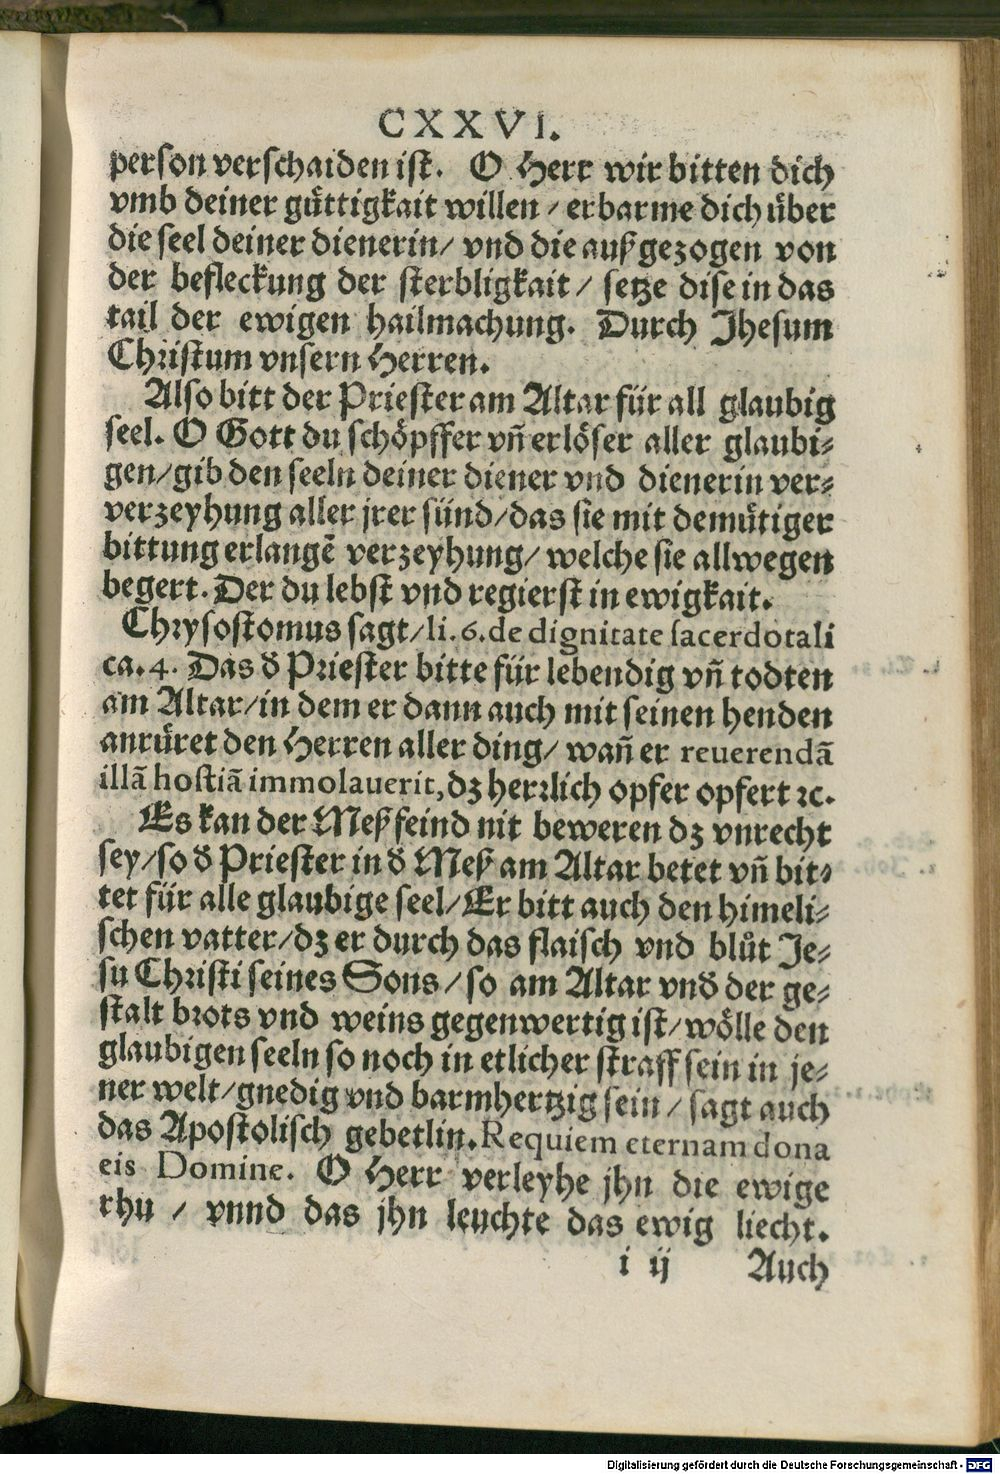 CXXVI.
person verschaiden ist. O Herr wir bitten dich
vmb deiner gu͛ttigkait willen / erbarme dich über
die seel deiner dienerin/ vnd die außgezogen von
der befleckung der sterbligkait / setze dise in das
tail der ewigen hailmachung. Durch Jhesum
Christum vnsern Herren.
Also bitt der Priester am Altar für all glaubig
seel. O Gott du schöpffer vn̄ erlöser aller glaubi⸗
gen/gib den seeln deiner diener vnd dienerin ver⸗
verzeyhung aller jrer sünd/das sie mit demu͛tiger
bittung erlangē verzeyhung/ welche sie allwegen
begert. Der du lebst vnd regierst in ewigkait.
Chrysostomus sagt/li. 6. de dignitate sacerdotali
ca. 4. Das d̄ Priester bitte für lebendig vn̄ todten
am Altar/in dem er dann auch mit seinen henden
anru͛ret den Herren aller ding/ wan̄ er reuerendā
illā hostiā immolauerit, dz herrlich opfer opfert ꝛc.
Es kan der Meßfeind nit beweren dz vnrecht
sey/so d̄ Priester in d̄ Meß am Altar betet vn̄ bit⸗
tet für alle glaubige seel/Er bitt auch den himeli⸗
schen vatter/dz er durch das flaisch vnd blůt Je⸗
su Christi seines Sons / so am Altar vnd̄ der ge⸗
stalt brots vnd weins gegenwertig ist/wölle den
glaubigen seeln so noch in etlicher straff sein in je⸗
ner welt/gnedig vnd barmhertzig sein / sagt auch
das Apostolisch gebetlin. Requiem eternam dona
eis Domine. O Herr verleyhe jhn die ewige
rhu / vnnd das jhn leuchte das ewig liecht.
i ij Auch
Digitalisierung gefördert durch die Deutsche Forschungsgemeinschaft - DFG